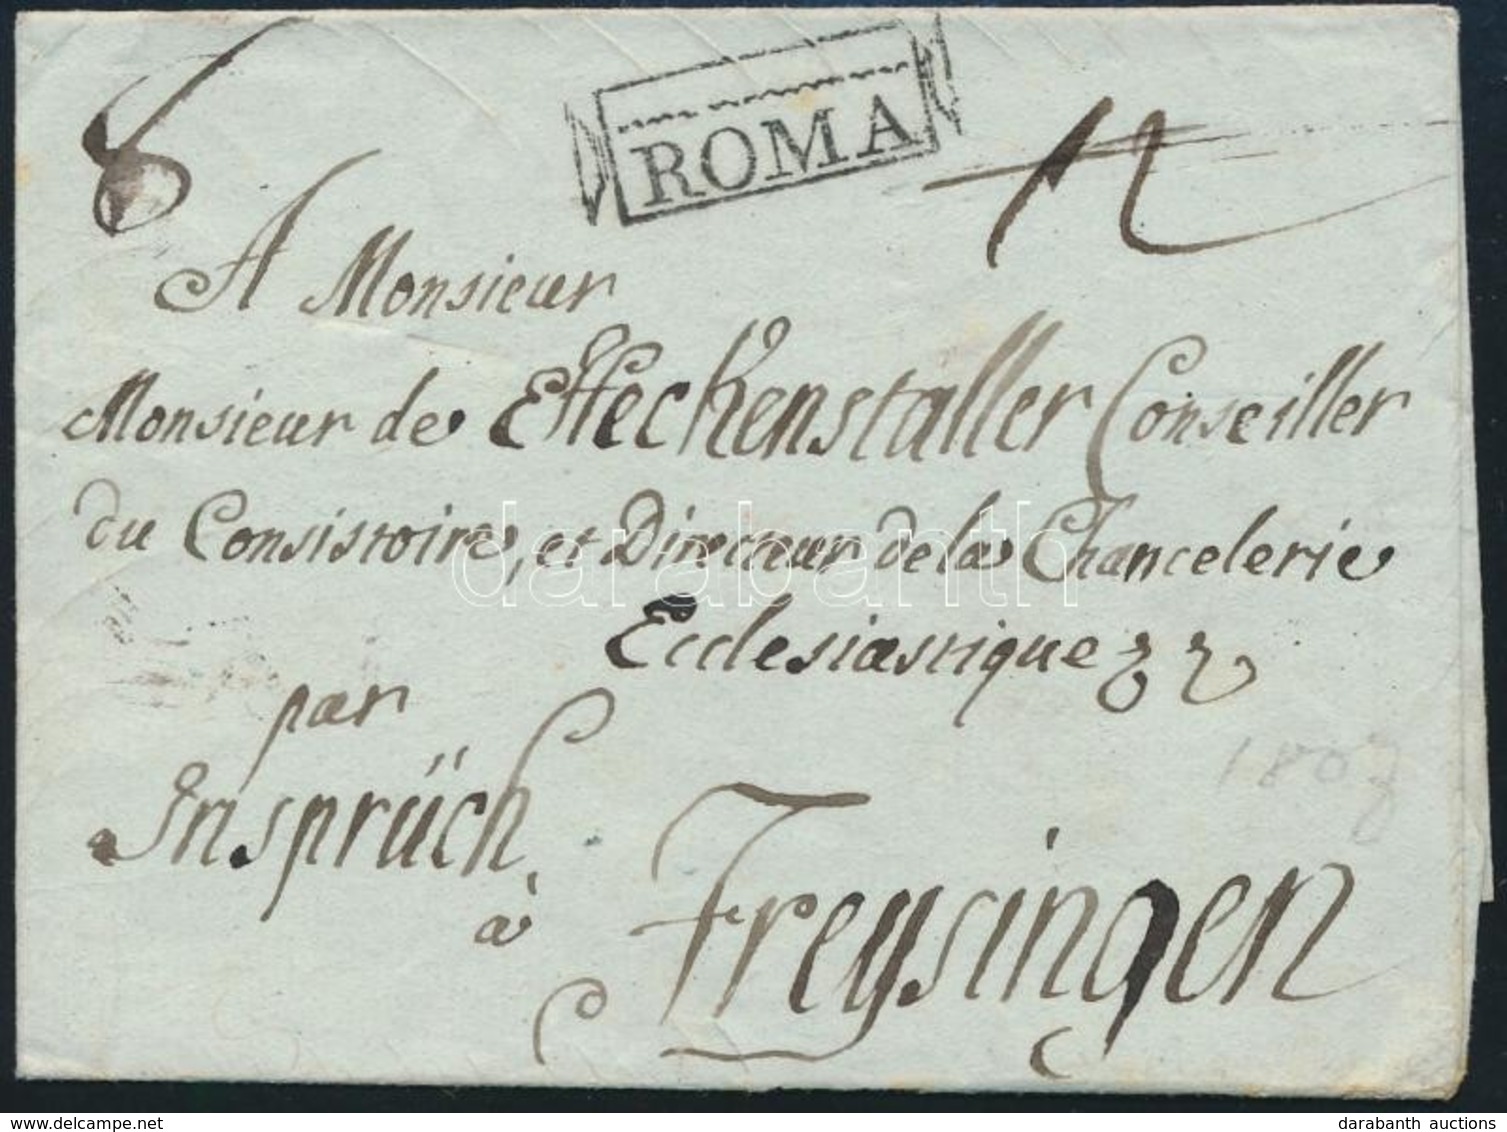 8
ROMA
12
A Monsieur
Monsieur de Heckenstaller Conseiller
du Consistoire, et Directeur de la Chancelerie
Ecclesiastique
par
Insprüch
à
Freysingen
1807
darabanth
darabanth auctions